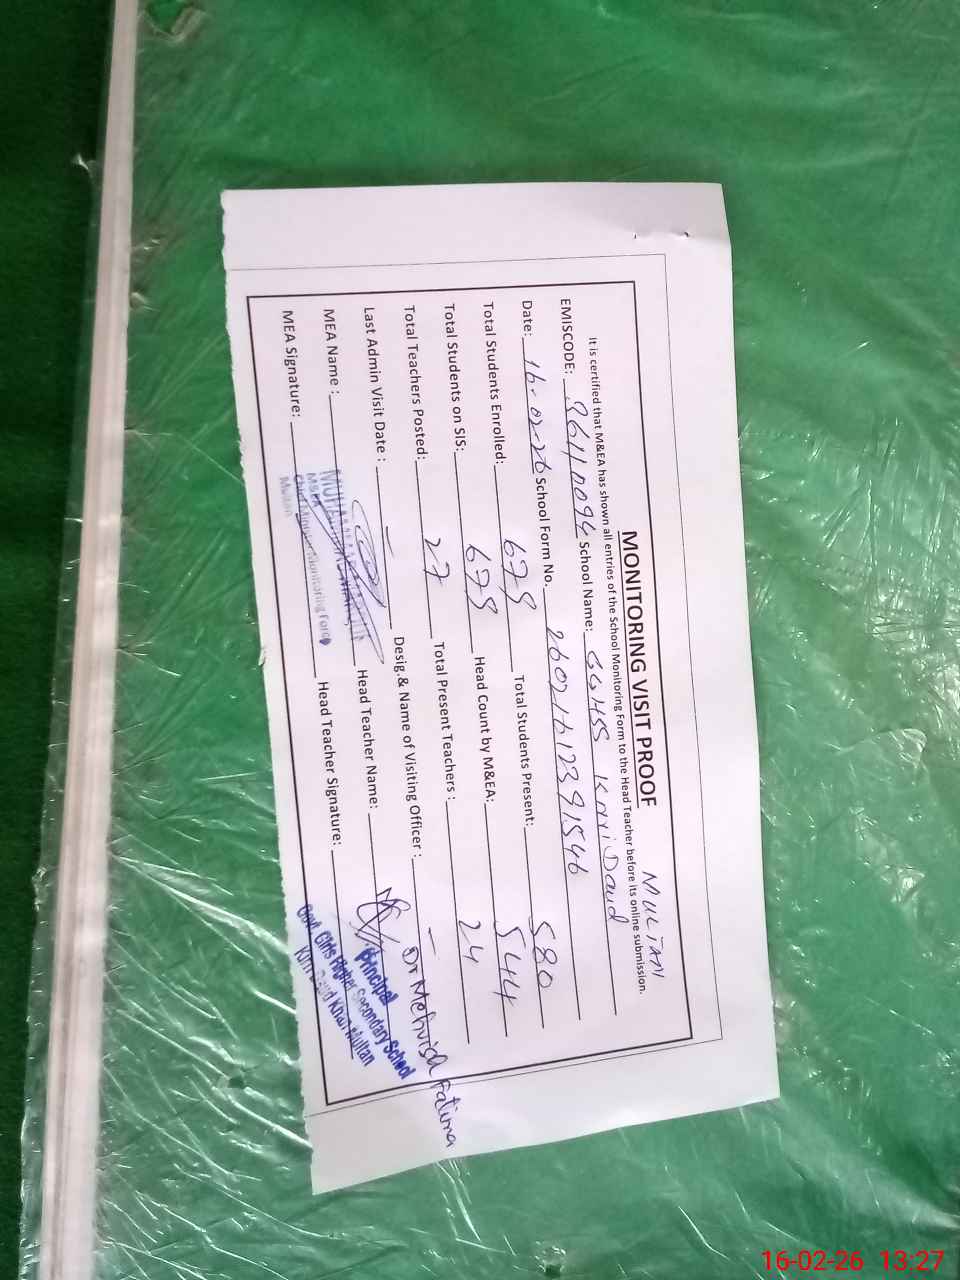 MONITORING VISIT PROOF
MULTAN
It is certified that M&EA has shown all entries of the School Monitoring Form to the Head Teacher before its online submission.
EMISCODE: 36110094 School Name: GGHSS Kirri Daud
Date: 16-02-26 School Form No. 26021612391546
Total Students Enrolled: 678 Total Students Present: 580
Total Students on SIS: 678 Head Count by M&EA: 544
Total Teachers Posted: 27 Total Present Teachers : 24
Last Admin Visit Date : — Desig.& Name of Visiting Officer : —
MEA Name : Head Teacher Name: Dr Mehvish Fatima
MEA Signature: Head Teacher Signature:
Monitoring Force
Multan
Principal
Govt. Girls Higher Secondary School
Daud Khan Multan
16-02-26 13:27